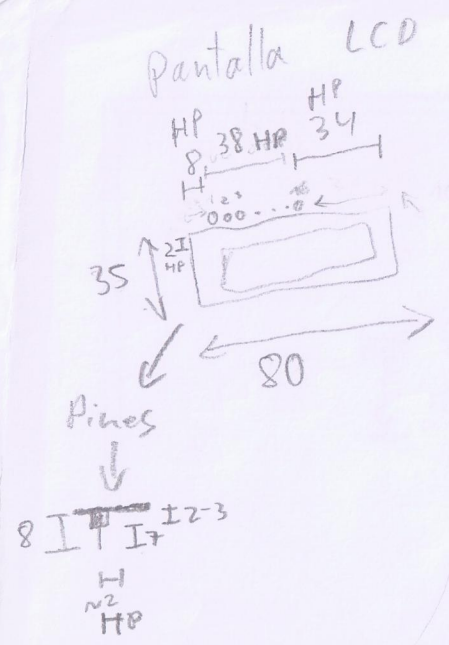 Pantalla LCD
HP 8
38 HP
HP 34
1 2 3
35
2
HP
80
Pines
8
7
2-3
~2
HP